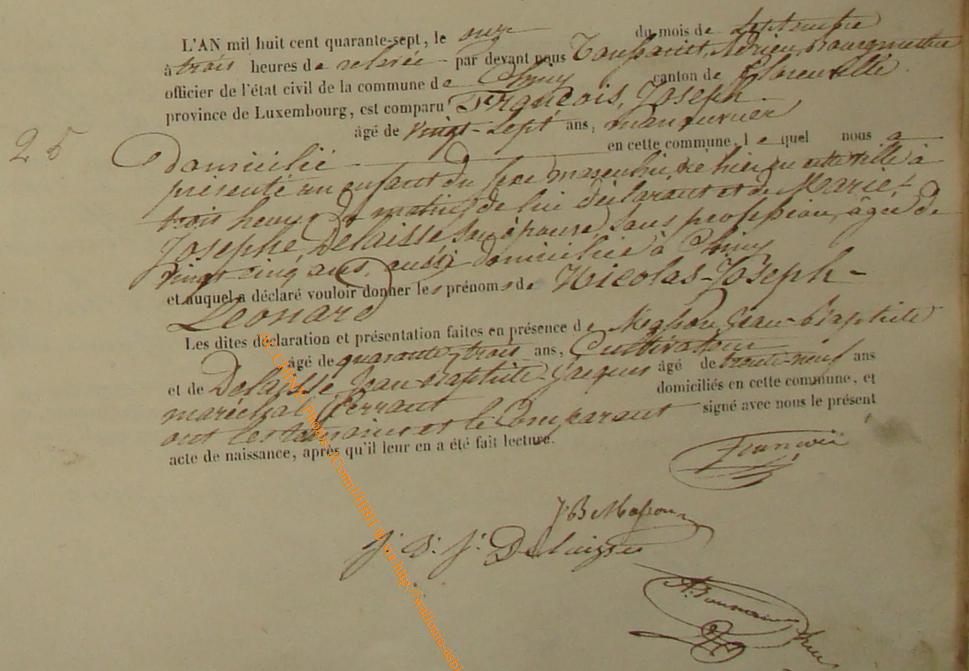 L'AN mil huit cent quarante-sept, le onze du mois de septembre
à trois heures de relevée par devant nous Adrien, Bourgmestre
officier de l'état civil de la commune de Chiny canton de Florenville
province de Luxembourg, est comparu François, Joseph
âgé de vingt-sept ans, manouvrier
25
domicilié en cette commune, le quel nous a
présenté un enfant du sexe masculin, né hier en cette ville à
trois heures du matin, de lui déclarant et de Marie-
Josephe, Delaisse son épouse, sans profession, âgée de
vingt-cinq ans, aussi domiciliée à Chiny
et auquel a déclaré vouloir donner les prénoms de Nicolas-Joseph-
Léonard
Les dites déclaration et présentation faites en présence de Masson, Jean-Baptiste
âgé de quarante-trois ans, Cultivateur
et de Delaisse Jean-Baptiste-Jacques âgé de trente-neuf ans
maréchal ferrant domiciliés en cette commune, et
ont les témoins et le Comparant signé avec nous le présent
acte de naissance, après qu'il leur en a été fait lecture.
François
J B Masson
J. B. J. Delaisse